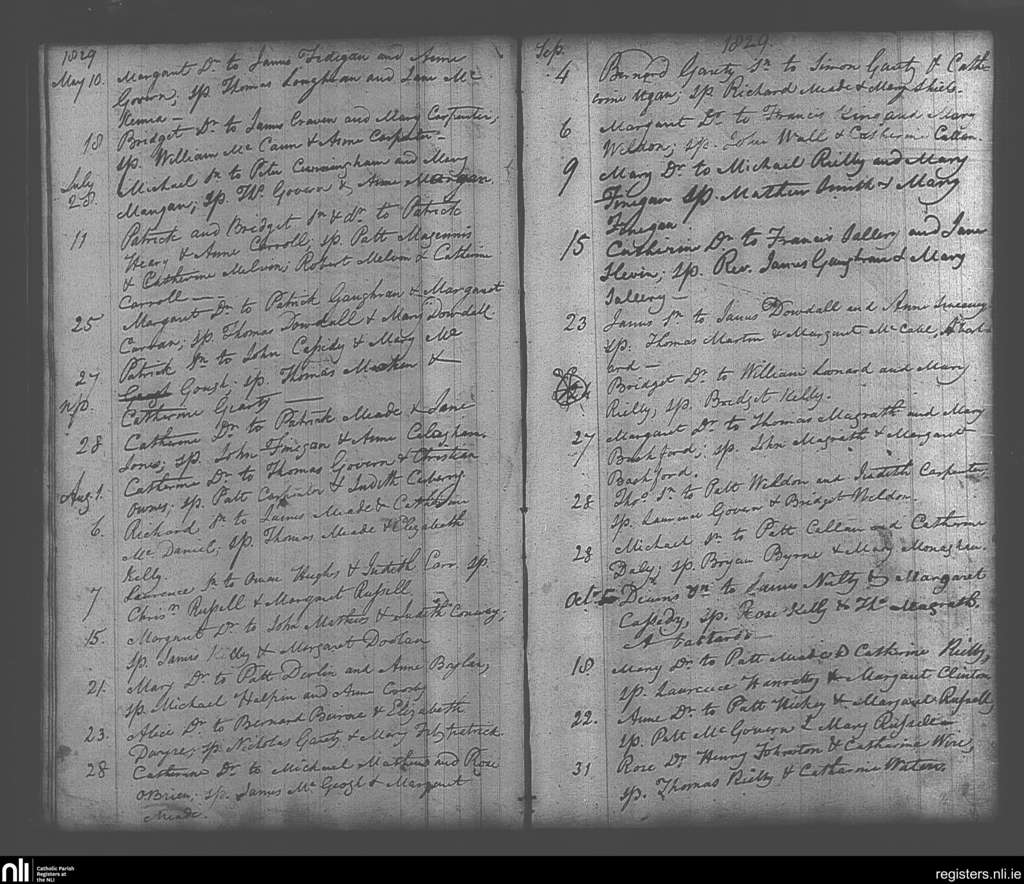 1829
May 10. Margaret Dr. to James Fedigan and Anne
Govern; sp. Thomas Loughran and Jane Mc
Kenna —
18 Bridget Dr. to James Craven and Mary Carpenter;
sp. William Mc Cann & Anne Carpenter.
July 28. Michael Sn. to Peter Cunningham and Mary
Mangan; sp. Ths. Govern & Anne Mangan.
11 Patrick and Bridget Sn. & dr. to Patrick
Heary & Anne Carroll; sp. Patt Magennis
& Catherine Melvin; Robert Melvin & Catherine
Carroll —
25 Margaret Dr. to Patrick Gaughran & Margaret
sp. Thomas Dowdall & Mary Dowdall
27 Patrick Sn. to John Cassidy & Mary Mc
Geogh Gough; sp. Thomas &
Catherine Gearty —
28 Catherine Dr. to Patrick Meade & Jane
Jones; sp. John Finigan & Anne Calaghan.
Aug. 1. Catherine Dr. to Thomas Govern & Christian
Owens; sp. Patt Carpenter & Judith
6. Richard Sn. to James Meade & Catherine
Mc Daniel; sp. Thomas Meade & Elizabeth
Kelly.
7 Laurence Sn. to Hughs & Judith Carr. sp.
Chrisn. Russell & Margaret Russell
15. Margaret Dr. to John Mathews & Judith Conway;
sp. James Kelly & Margaret Doolan
21. Mary Dr. to Patt Devlin and Anne
sp. Michael Halpin and Anne
23. Alice Dr. to Bernard Byrne & Elizabeth
sp. Nicholas Garty & Mary Fitzpatrick.
28 Catherine Dr. to Michael Mathews and Rose
OBrien; sp. James Mc Geogh & Margaret
Meade.
Sep. 1829
4 Bernard Garty Sn. to Simon Garty & Cathe
rine sp. Richard Meade & Mary Shiels.
6 Margaret Dr. to Francis King and Mary
Weldon; sp. John Wall & Catherin Callan.
9 Mary Dr. to Michael Reilly and Mary
Finegan sp. Mathew Smith & Mary
Finegan
15 Catherin Dr. to Francis Tallery and Jane
Slevin; sp. Rev. James Gaughran & Mary
Tallery —
23 James Sn. to James Dowdall and Anne Sweeney
sp. Thomas Martin & Margaret Mc Cabe, A bast
ard —
24 Bridget Dr. to William Lenard and Mary
Reilly, sp. Bridget Kelly.
27 Margaret Dr. to Thomas Magrath and Mary
Bashford; sp. John Magrath & Margaret
Bashford.
28 Thos. Sn. to Patt Weldon and Judith Carpenter;
sp. Laurence Govern & Bridget Weldon.
28 Michael Sn. to Patt Callan and Catherine
Daly; sp. Bryan Byrne & Mary Monaghan.
Octr. 5 Sn. to James Nulty & Margaret
Cassedy, sp. Rose Kelly & Ths. Magrath.
A bastard —
18 Mary Dr. to Patt Meade & Catherine Reilly,
sp. Laurence Hanretty & Margaret Clinton
22. Anne Dr. to Patt Hickey & Margaret Russell
sp. Patt Mc Govern & Mary Russell —
31 Rose Dr. Henry Johnston & Catharine Wire;
sp. Thomas Reilly & Catharine Waters.
nli Catholic Parish
Registers at
the NLI
registers.nli.ie